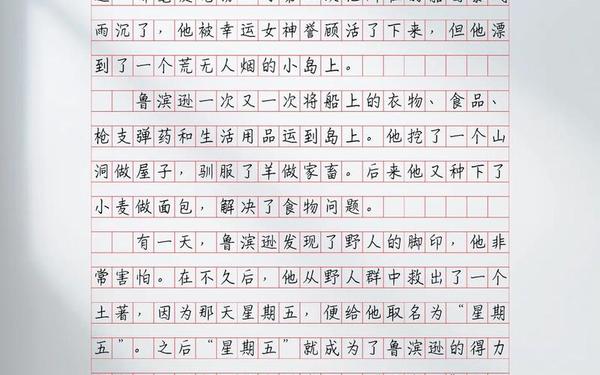 雨沉了，他被幸运女神誉顾活了下来，但他漂
到了一个荒无人烟的小岛上。
鲁滨逊一次又一次将船上的衣物、食品、
枪支弹药和生活用品运到岛上。他挖了一个山
洞做屋子，驯服了羊做家畜。后来他又种下了
小麦做面包，解决了食物问题。
有一天，鲁滨逊发现了野人的脚印，他非
常害怕。在不久后，他从野人群中救出了一个
土著，因为那天星期五，便给他取名为“星期
五”。之后“星期五”就成为了鲁滨逊的得力